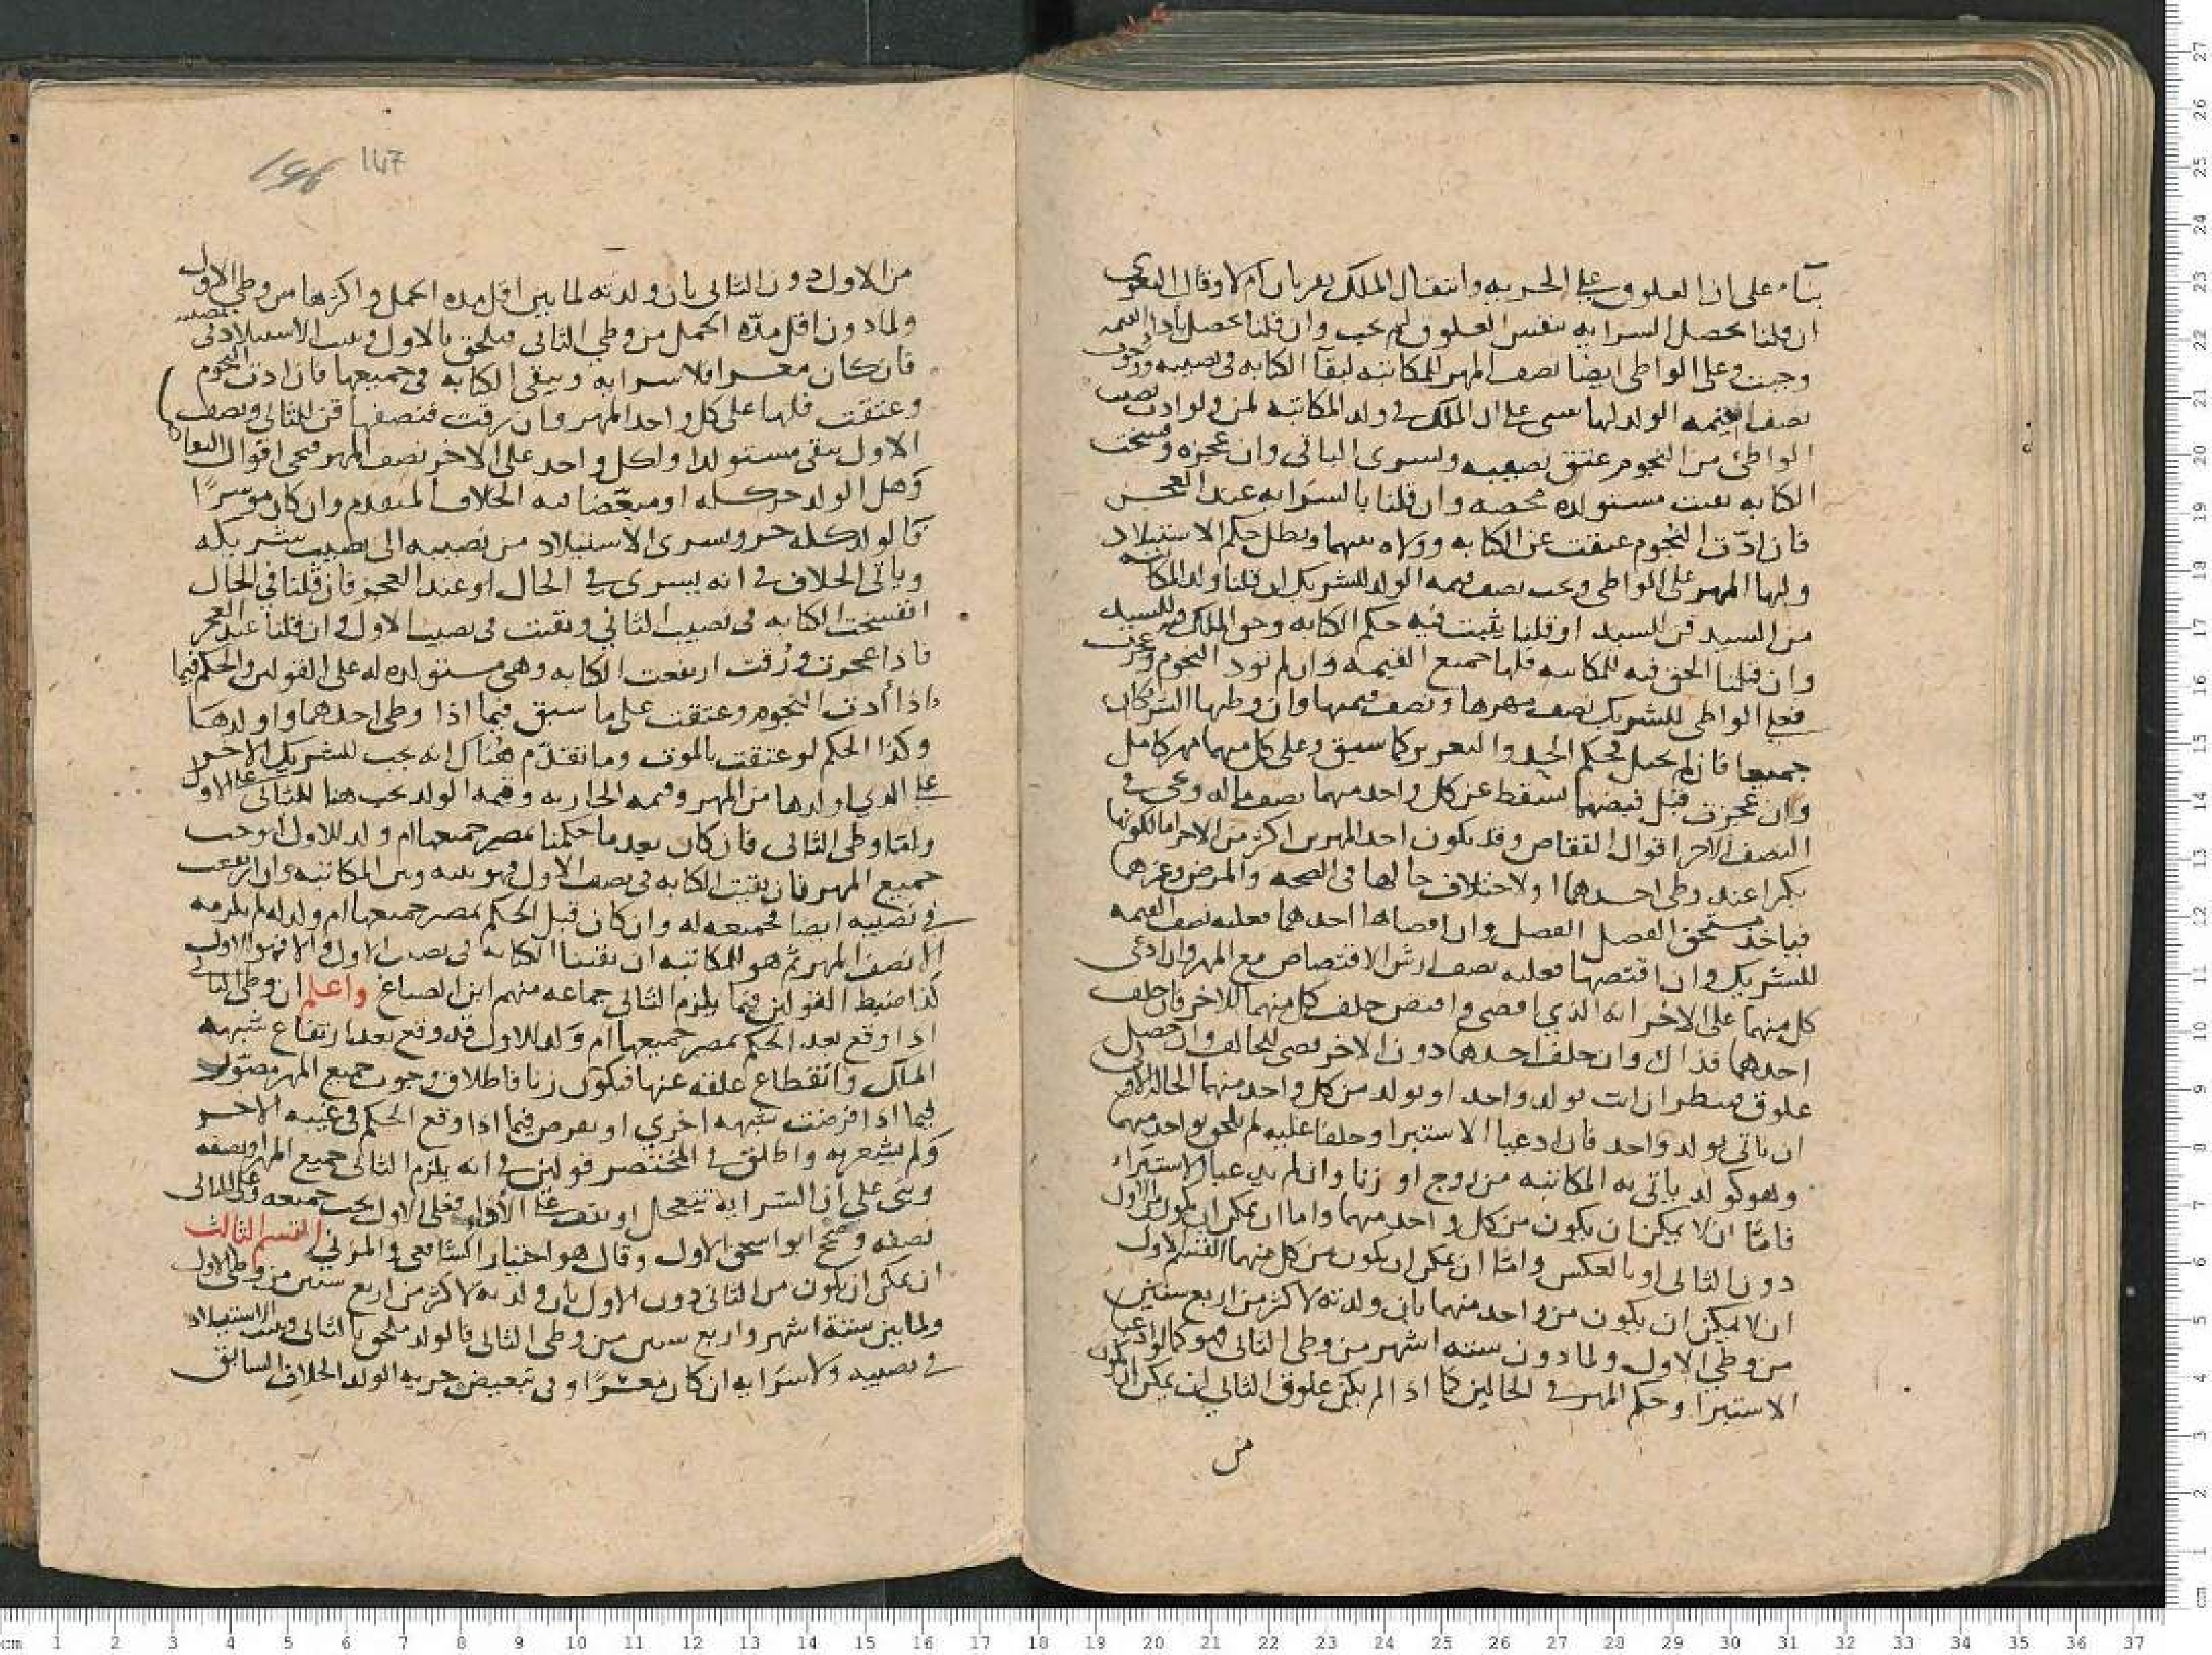 بناء على ان العلوق على الحريه وانتقال الملك يقربان ام لا وقال البغوي
ان قلنا تحصل السرايه بنفس العلوق لم تجب وان قلنا تحصل بأدا القيمه
وجبت وعلى الواطى ايضا نصف المهر للمكاتبه لبقا الكتابه فى نصيبه ووجوب
نصف قيمه الولد لها يبنى على ان الملك فى ولد المكاتبه لمن ولو ادت نصيب
الواطئ من النجوم عتق نصيبه ويسرى الى الباقى وان عجزه وفسخت
الكتابه بقيت مستولده محضه وان قلنا بالسرايه عند العجز
فان ادّت النجوم عتقت عن الكتابه وولاه بينهما وبطل حكم الاستيلاد
ولها المهر على الواطى ويجب نصف قيمه الولد للشريك ان قلنا ولد المكاتبه
من السيد قن للسيد او قلنا يثبت فيه حكم الكتابه وحق الملك فيه للسيد
وان قلنا الحق فيه للمكاتبه فلها جميع القيمه وان لم تود النجوم وعجزت
فعلى الواطى للشريك نصف مهرها ونصف قيمتها وان وطيها الشريكان
جميعا فان لم تحبل فحكم الحد والتعزير كما سبق وعلى كل منهما مهر كامل
وان عجزت قبل قبضهما سقط عن كل واحد منهما نصف ماله وتجى فى
النصف الاخر اقوال التقاص وقد يكون احد المهرين اكثر من الاخر اما لكونها
بكرا عند وطى احدهما او لاختلاف حالها فى الصحه والمرض وغيرهما
فياخذ مستحق الفضل الفضل وان افضاها احدهما فعليه نصف القيمه
للشريك وان اقتضها فعليه نصف ارش الاقتضاض مع المهر وان ادعى
كل منهما على الاخر انه الذي افضى او اقتض حلف كل منهما للاخر فان حلف
احدهما فذاك وان حلف احدهما دون الاخر قضى للحالف وان حصل
علوق فينظر ان اتت بولد واحد او بولد من كل واحد منهما الحاله الاولى
ان تاتى بولد واحد فان ادعيا الاستبرا وحلفا عليه لم يلحق بواحد منهما
وهو كولد تاتى به المكاتبه من زوج او زنا وان لم يدعيا الاستبراء
فامّا ان لا يمكن ان يكون من كل واحد منهما واما ان يمكن ان يكون من الاول
دون الثانى او بالعكس وامّا ان يمكن ان يكون من كل منهما القسم الاول
ان لا يمكن ان يكون من واحد منهما بان ولدته لاكثر من اربع سنين
من وطي الاول ولما دون سته اشهر من وطى الثانى فهو كما لو ادعيا
الاستبرا وحكم المهر فى الحالين كما اذا لم يكن علوق الثانى ان يمكن ان يكون
من
147
من الاول دون الثانى بان ولدته لما بين اقل مده الحمل واكثرها من وطي الاول
ولما دون اقل مدّه الحمل من وطي الثانى فيلحق بالاول ويثبت الاستيلاد فى نصيبه
فان كان معسرا فلا سرايه ويبقى الكتابه فى جميعها فان ادت النجوم
وعتقت فلها على كل واحد المهر وان رقت فنصفها قن للثانى ونصف
الاول يبقى مستولدا ولكل واحد على الاخر نصف المهر فتجى اقوال التقاص
وهل الولد حر كله او مبعّضا فيه الخلاف المتقدم وان كان موسرًا
فالولد كله حر ويسرى الاستيلاد من نصيبه الى نصيب شريكه
وياتى الخلاف فى انه يسرى فى الحال او عند العجز فان قلنا فى الحال
انفسخت الكتابه فى نصيب الثاني وبقيت فى نصيب الاول وان قلنا عند العجز
فاذا عجزت ورقت ارتفعت الكتابه وهى مستولده له على القولين والحكم فيما
اذا أدت النجوم وعتقت على ما سبق فيما اذا وطى احدهما واولدها
وكذا الحكم لو عتقت بالموت وما تقدّم هناك انه يجب للشريك الاخر
على الذي اولدها من المهر وقيمه الجاريه وقيمه الولد يجب هنا للثانى على الاول
ولقا وطى الثانى فان كان بعد ما حكمنا بمصير جميعها ام ولد للاول اوجب
جميع المهر فان بقيت الكتابه فى نصف الاول فهو بينه وبين المكاتبه وان ارتفعت
فى نصيبه ايضا فجميعه له وان كان قبل الحكم بمصير جميعها ام ولد له لم يلزمه
الا نصف المهر ثم هو للمكاتبه ان بقينا الكتابه فى نصيب الاول والا فهو للاول
كذا ضبط القولين فيما يلزم الثانى جماعه منهم ابن الصباغ واعلم ان وطى الثانى
اذا وقع بعد الحكم بمصير جميعها ام ولد للاول فقد وقع بعد ارتفاع شبهه
الملك وانقطاع علقه عنها فيكون زنا فاطلاق وجوب جميع المهر مصوّر
فيما اذا فرضت شبهه اخري او يفرض فيما اذا وقع الحكم فى غيبه الاخر
ولم يشعر به واطلق فى المختصر قولين فى انه يلزم الثانى جميع المهر او نصفه
وبنى على أن السرايه تتعجل او تقف على الأداء فعلى الاول يجب جميعه وعلى الثانى
نصفه وصحح ابو اسحق الاول وقال هو اختيار الشافعي والمزنى القسم الثالث
ان يمكن ان يكون من الثانى دون الاول بان ولدته لاكثر من اربع سنين من وطى الاول
ولما بين ستة اشهر واربع سنين من وطى الثانى فالولد ملحق بالثانى ويثبت الاستيلاد
فى نصيبه ولا سرايه ان كان معسرًا وفى تبعيض حريه الولد الخلاف السابق